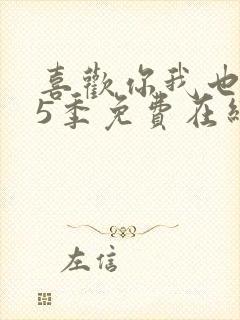 喜歡你我也
5季免費在線
左信